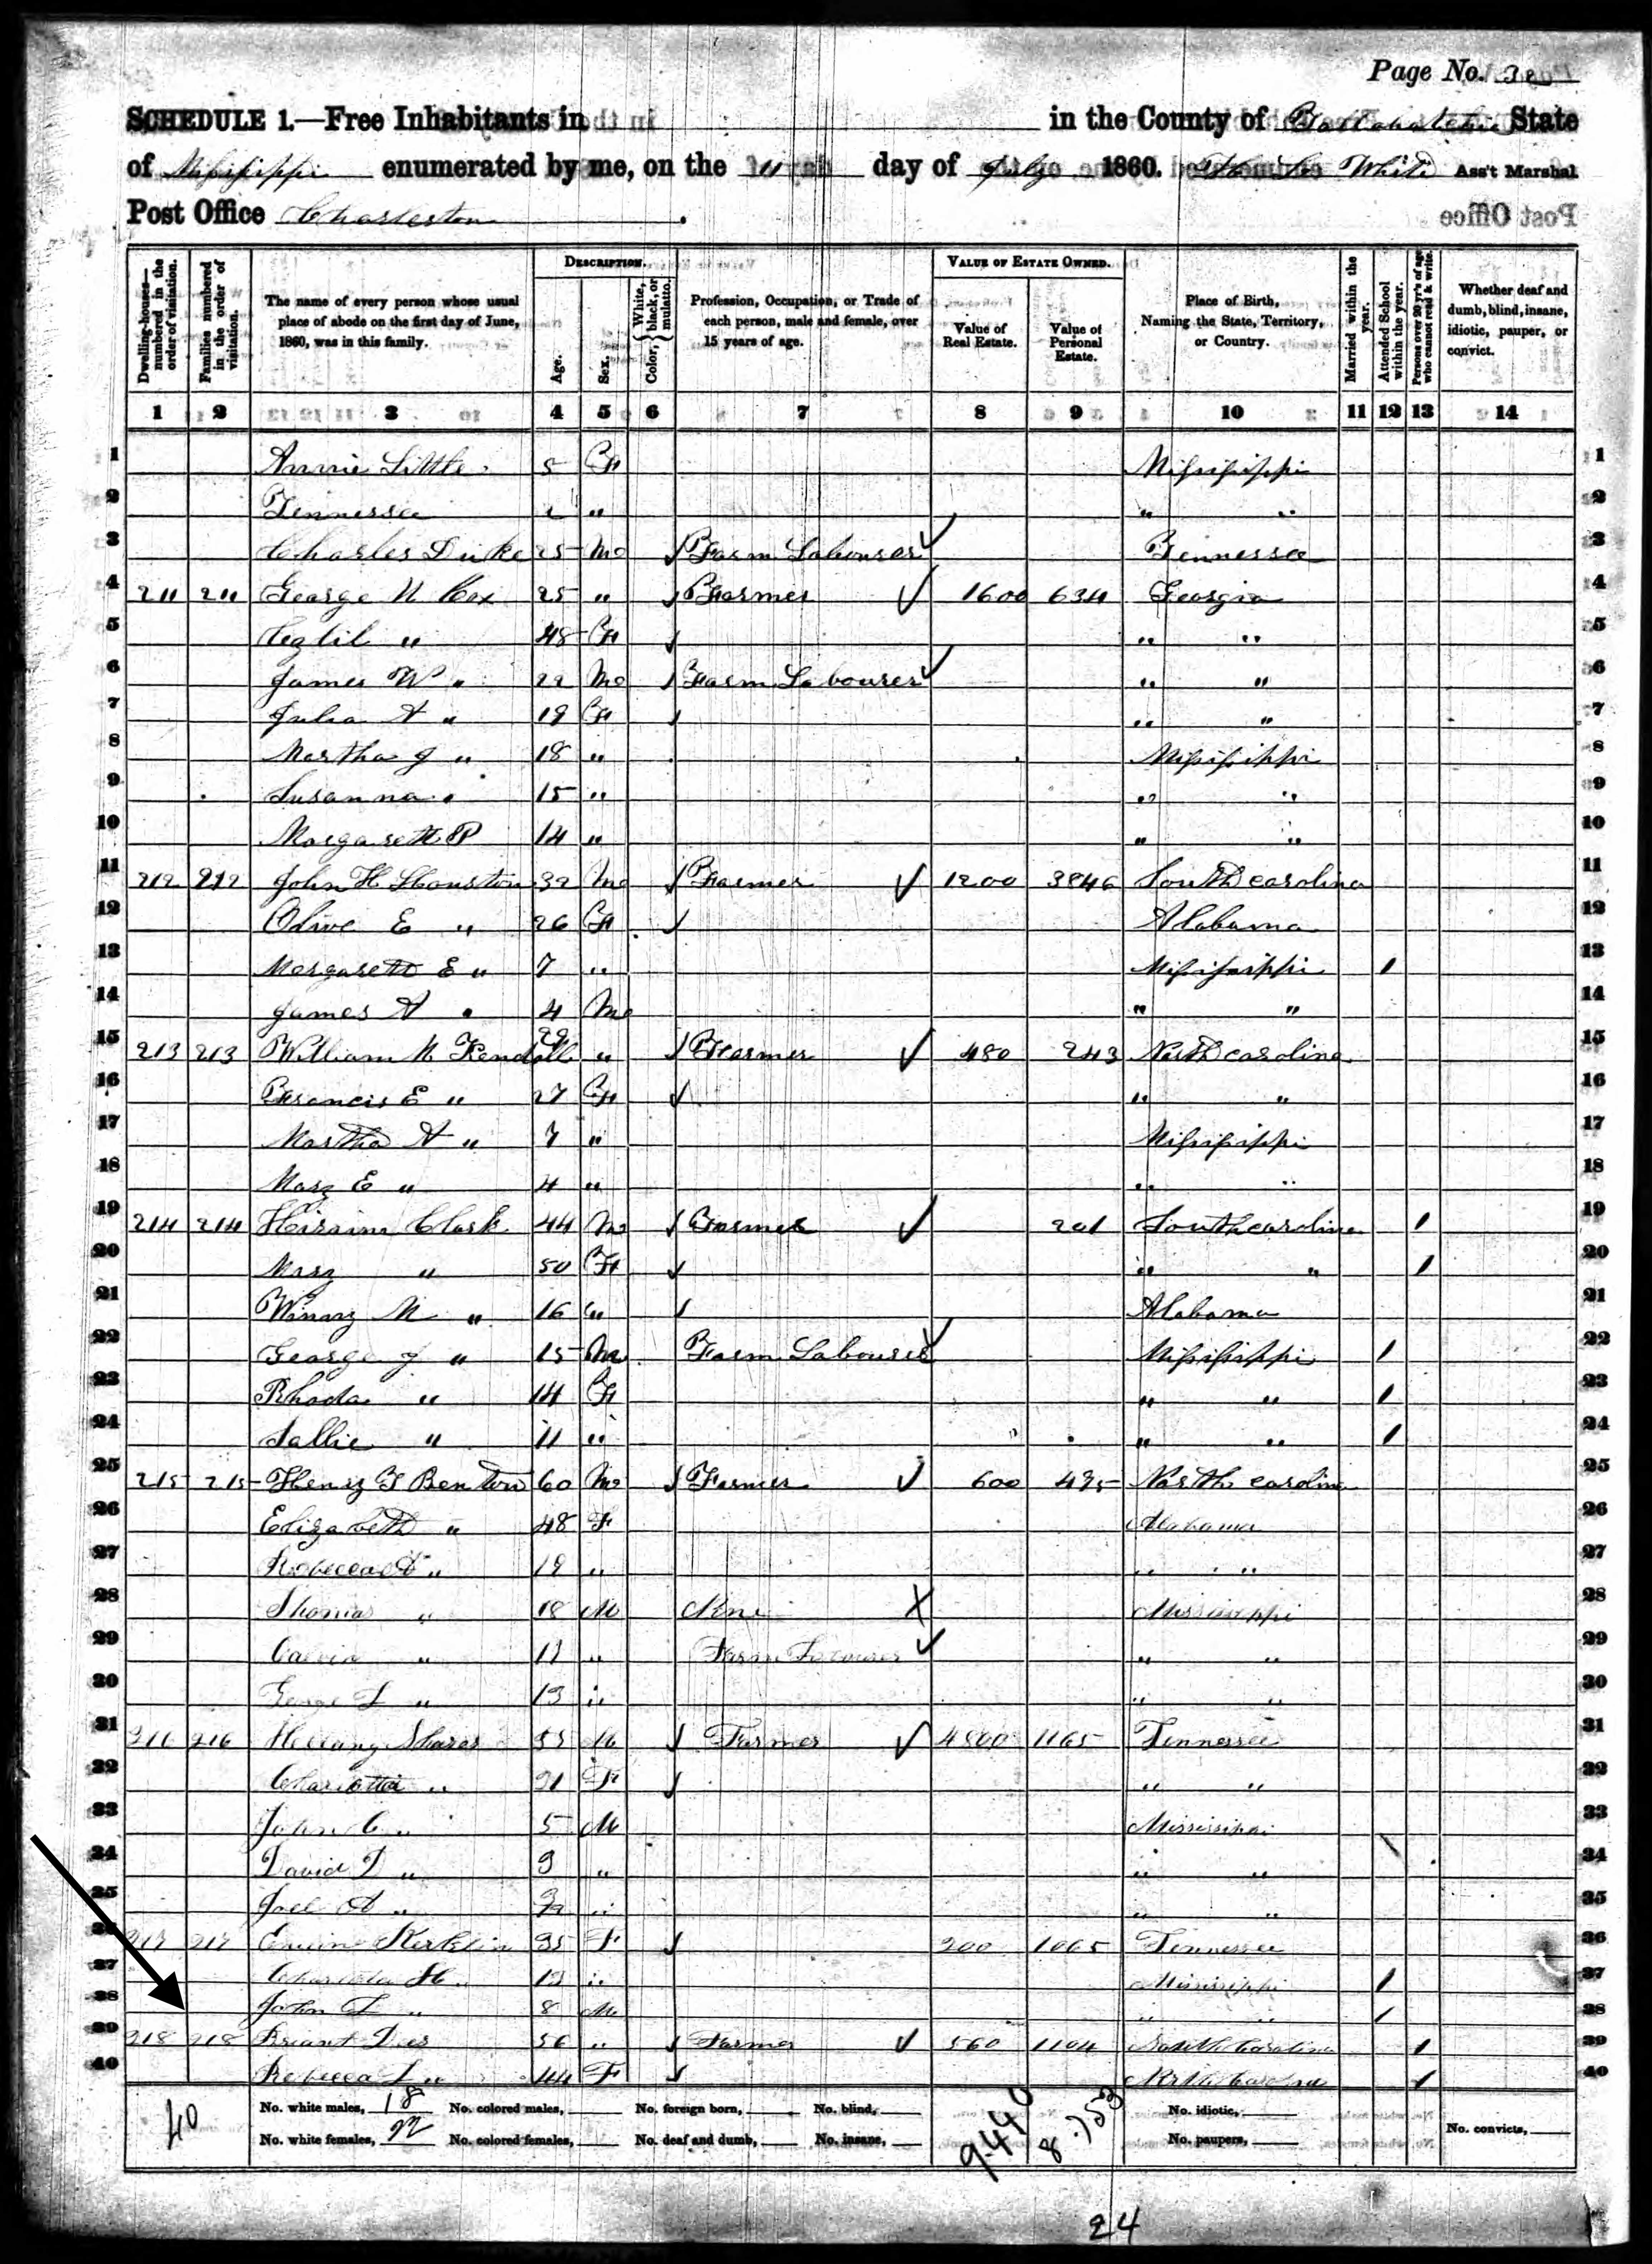 Page No. 38
SCHEDULE 1.—Free Inhabitants in in the County of Tallahatchie State
of Mississippi enumerated by me, on the 11 day of July 1860. White Ass't Marshal
Post Office Charleston
DESCRIPTION. VALUE OF ESTATE OWNED.
Dwelling-houses—numbered in the order of visitation. Families numbered in the order of visitation. The name of every person whose usual place of abode on the first day of June, 1860, was in this family. Age. Sex. Color, White, black, or mulatto. Profession, Occupation, or Trade of each person, male and female, over 15 years of age. Value of Real Estate. Value of Personal Estate. Place of Birth, Naming the State, Territory, or Country. Married within the year. Attended School within the year. Persons over 20 y'rs of age who cannot read & write. Whether deaf and dumb, blind, insane, idiotic, pauper, or convict.
1 2 3 4 5 6 7 8 9 10 11 12 13 14
1 Annie Little 5 F Mississippi 1
2 Tennessee " " " 2
3 Charles Duke 25 M Farm Labourer Tennessee 3
4 211 211 George N Cox 25 " Farmer 1600 634 Georgia 4
5 " 48 F " " 5
6 James W " 22 M Farm Labourer " " 6
7 Julia A " 19 F " " 7
8 Martha J " 18 " Mississippi 8
9 Susanna " 15 " " " 9
10 Margarett P 14 " " " 10
11 212 212 John H Houston 32 M Farmer 1200 3846 South Carolina 11
12 Olive E " 26 F Alabama 12
13 Margarett E " 7 " Mississippi / 13
14 James A " 4 M " " 14
15 213 213 William N Kendall 29 " Farmer 480 243 North Carolina 15
16 Francis E " 27 F " " 16
17 Martha A " 7 " Mississippi 17
18 Mary E " 4 " " " 18
19 214 214 Hiraim Clark 44 M Farmer 201 South Carolina / 19
20 Mary " 50 F " " / 20
21 Winny M " 16 " Alabama 21
22 George J " 15 M Farm Labourer Mississippi / 22
23 Rhoda " 14 F " " / 23
24 Sallie " 11 " " " / 24
25 215 215 Henry Benton 60 M Farmer 600 495 North Carolina 25
26 Elizabeth " 48 F Alabama 26
27 Rebecca A " 19 " " " 27
28 Thomas " 18 M Mississippi 28
29 Calvin " " Farm Labourer " " 29
30 George L " 13 " " " 30
31 216 216 Shares 35 M Farmer 4500 1165 Tennessee 31
32 Charlotte " F " " 32
33 John C " 5 M Mississippi 33
34 David D " 3 " " " 34
35 Joel A " " " " 35
36 217 217 Kirklin 35 F 200 1065 Tennessee 36
37 Charlotta H " " Mississippi / 37
38 John L " 8 M " " / 38
39 218 218 Briant 56 " Farmer 560 1104 Carolina / 39
40 Rebecca L " 44 F North Carolina / 40
40 No. white males, 18 No. colored males, No. foreign born, No. blind, 9.440 8.753 No. idiotic,
No. white females, 22 No. colored females, No. deaf and dumb, No. insane, No. paupers, No. convicts,
24